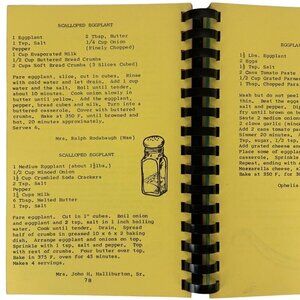 SCALLOPED EGGPLANT
1 Eggplant
1 Tsp. Salt
Pepper
2 Tbsp. Butter
1/4 Cup Onion
(Finely Chopped)
1 Cup Evaporated Milk
1/2 Cup Buttered Bread Crumbs
2 Cups Soft Bread Crumbs (3 Slices Cubed)
Pare eggplant, slice in cubes. Rinse
with cold water and let drain. Add 1 cup
water and the salt. Boil until tender,
about 10 minutes. Cook onion slowly in
butter until yellow. Add the eggplant,
pepper, bread cubes and milk. Turn into a
buttered casserole. Cover with bread crumbs.
Bake at 350 F. until browned and
hot, 20 minutes approximately.
Serves 6.
Mrs. Ralph Rodabaugh (Mae)
SCALLOPED EGGPLANT
1 Medium Eggplant (about 1½lbs.)
1/2 Cup Minced Onion
1½ Cup Crumbled Soda Crackers
2 Tsp. Salt
Pepper
1½ Cups Milk
6 Tbsp. Melted Butter
1 Tsp. Salt
Pare eggplant. Cut in 1" cubes. Boil onion
and eggplant and 2 tsp. salt in 1 inch boiling
water, Cook until tender. Drain, Spread
half of crumbs in greased 10 x 6 x 2 baking
dish. Arrange eggplant and onions on top,
Sprinkle with 1 tsp. salt and pepper. Top
with rest of crumbs. Pour butter over top,
Bake in 375 F. oven for 45 minutes.
Makes 4 servings.
Mrs. John H. Halliburton, Sr.
78
1½ Lbs. Eggplant
2 Eggs
1½ Tsp. Salt
2 Cans Tomato Paste
1/2 Cup Grated Parme
1 Tbsp. Chopped
Wash but do not peel
thin. Beat the egg
salt and pepper. Dip
until browned on
Saute 2 medium onions
2 cloves minced
Add 2 cans tomato
Simmer 10 minutes
spread
Add grated
Place some of
eggplant
casserole, Sprinkle
Repeat, ending with
Mozzarella cheese,
Bake at 350 F. for 30
Ophelia